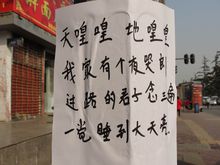 天皇皇 地皇皇
我家有个夜哭郎
过路的君子念三遍
一觉睡到大天亮